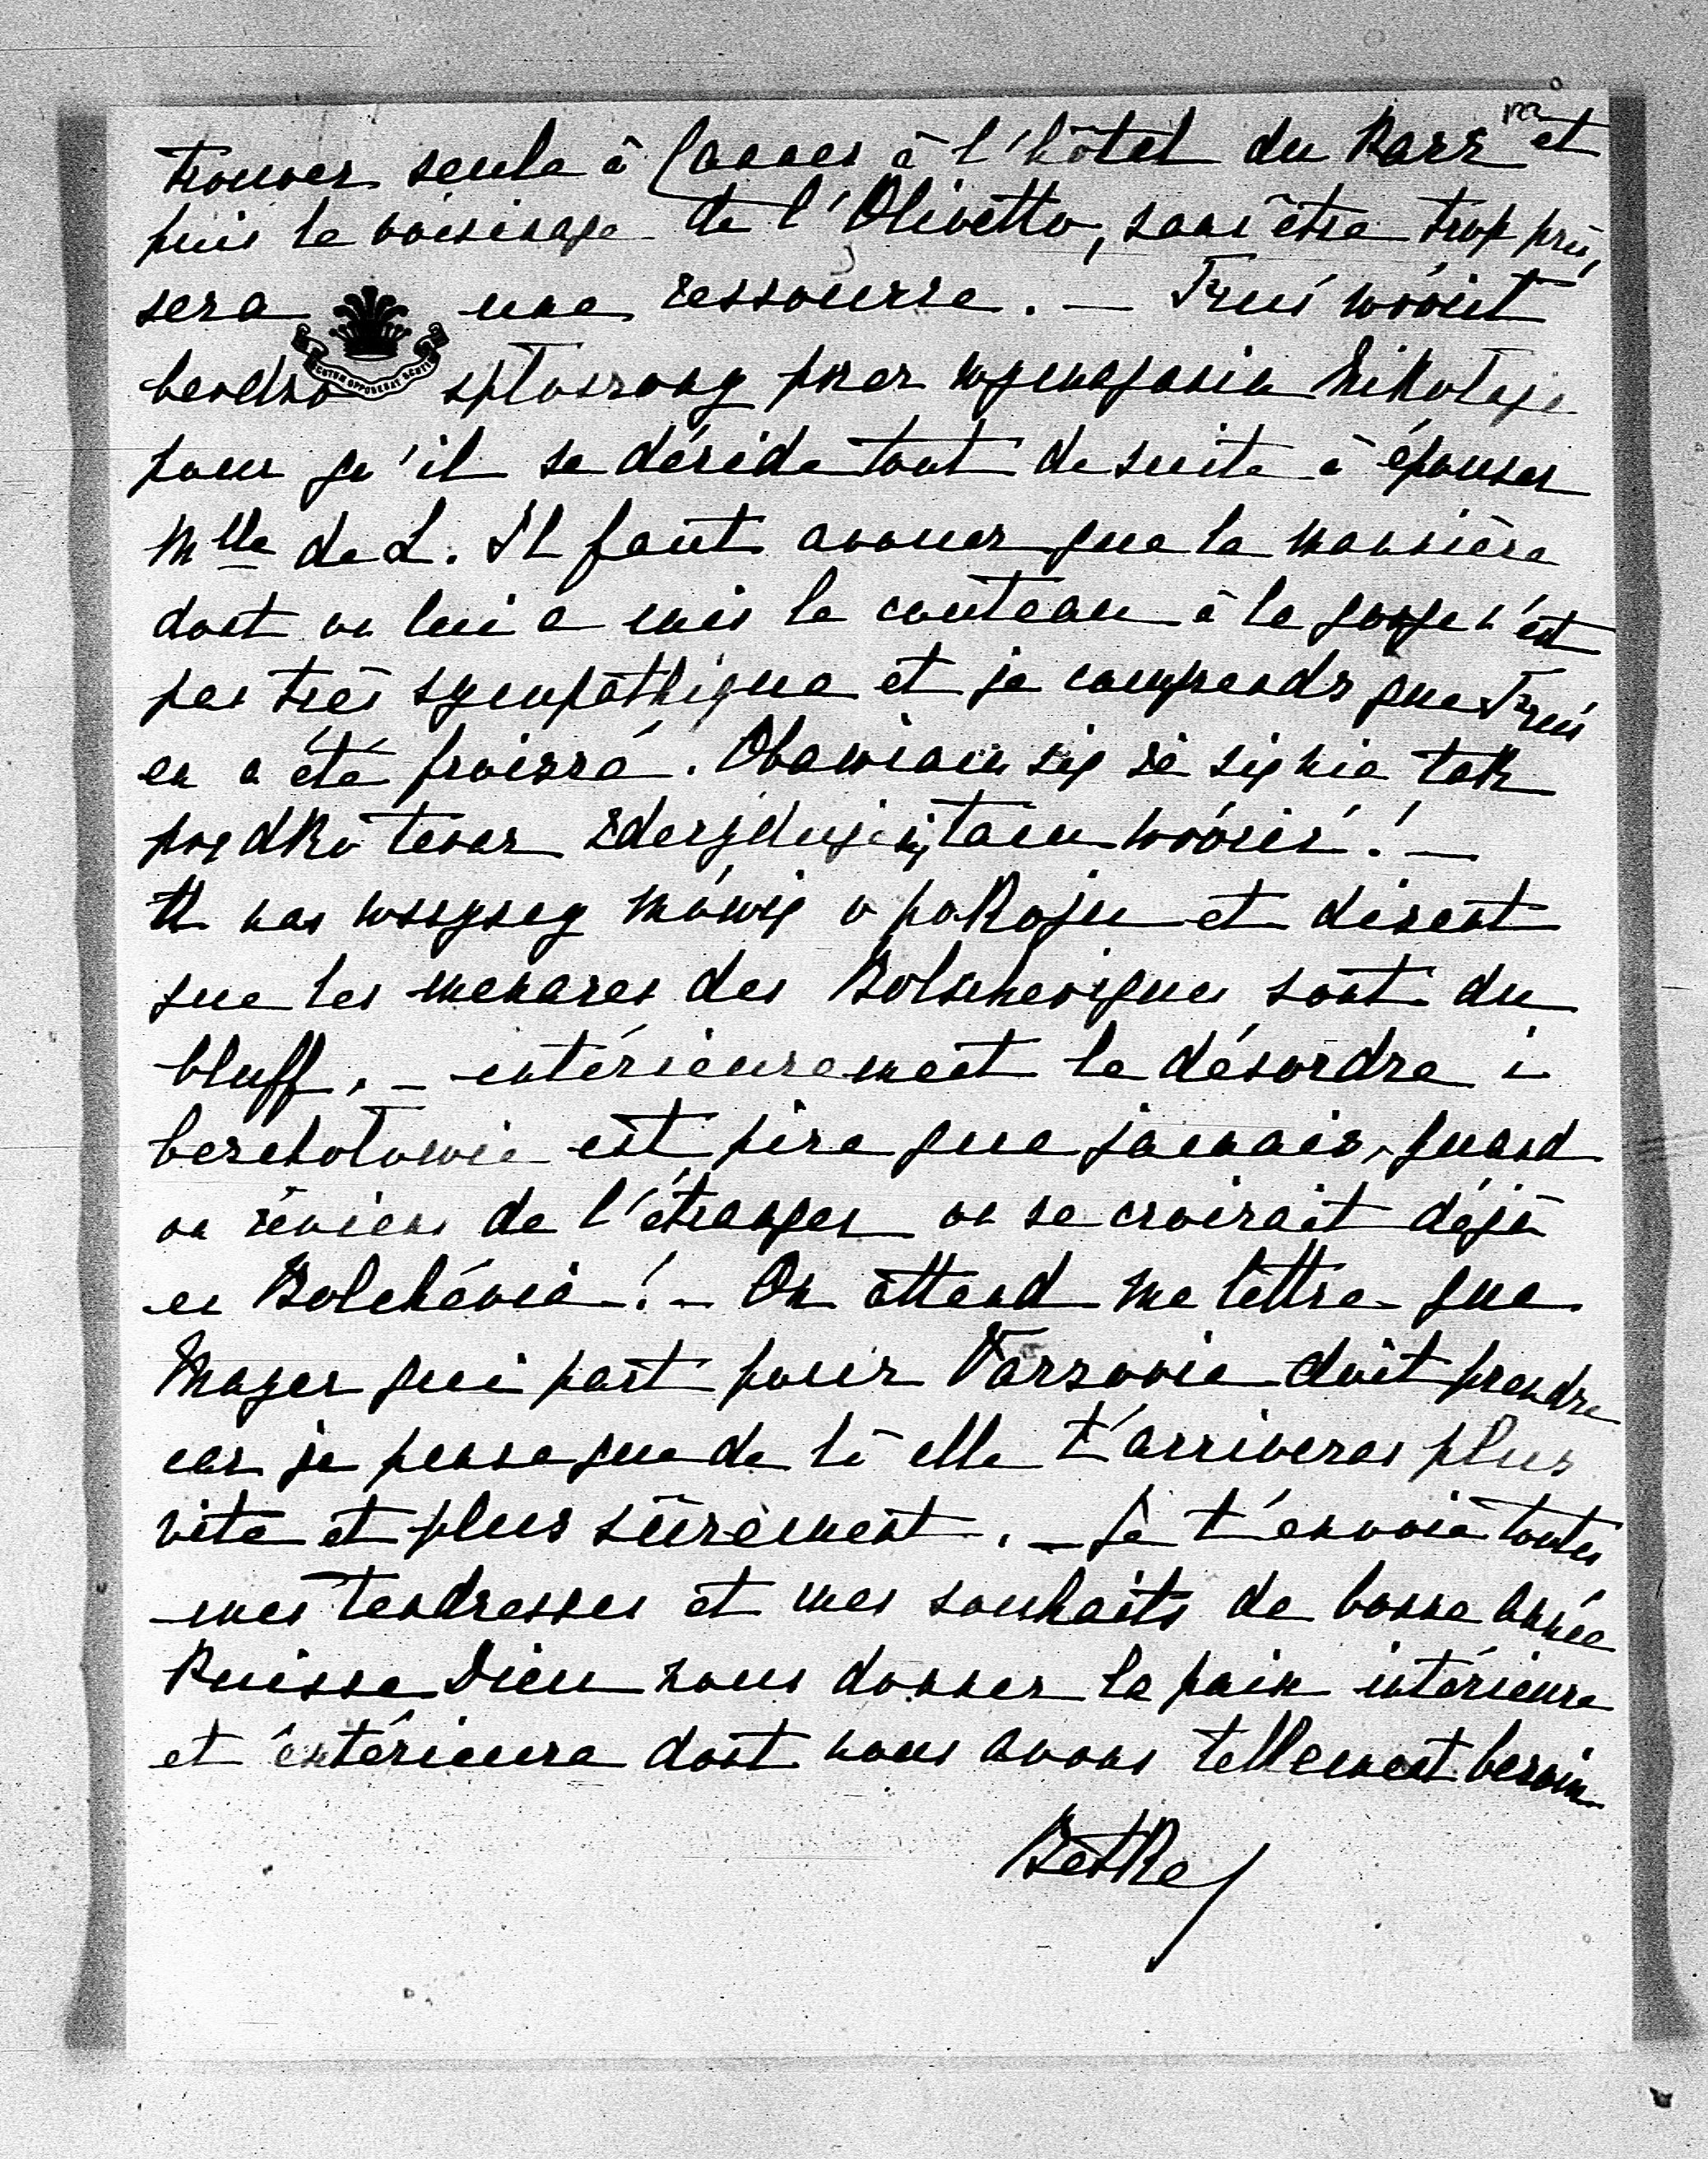 trouver seule à Cannes à l'hôtel du Parc et
puis le voisinage de l'Olivetto, sans être trop près,
sera une ressource. — Fruś wrócił
bardzo spłoszony przez wymagania Mikołaja
pour qu'il se décide tout de suite à épouser
Mlle de L. Il faut avouer que la mannière
dont on lui a mis le couteau à la gorge n'est
pas très sympathique et je comprends que Fruś
en a été froissé. Obawiam się że się nie tak
prędko teraz zdecyduje tam wrócić! —
U nas wszyscy mówią o pokoju et disent
que les menaces des Bolscheviques sont du
bluff. — intérieurement le désordre i
bezchołowie est pire que jamais, quand
on réviens de l'étranger on se croirait déjà
en Bolchévie! — On attend ma lettre que
Mayer qui part pour Varsovie doit prendre
car je pense que de là elle t'arriveras plus
vite et plus sûrement. — Je t'envoie toutes
mes tendresses et mes souhaits de bonne année
Puisse Dieu nous donner la paix intérieure
et éxtérieure dont nous avons tellement besoin
Betka